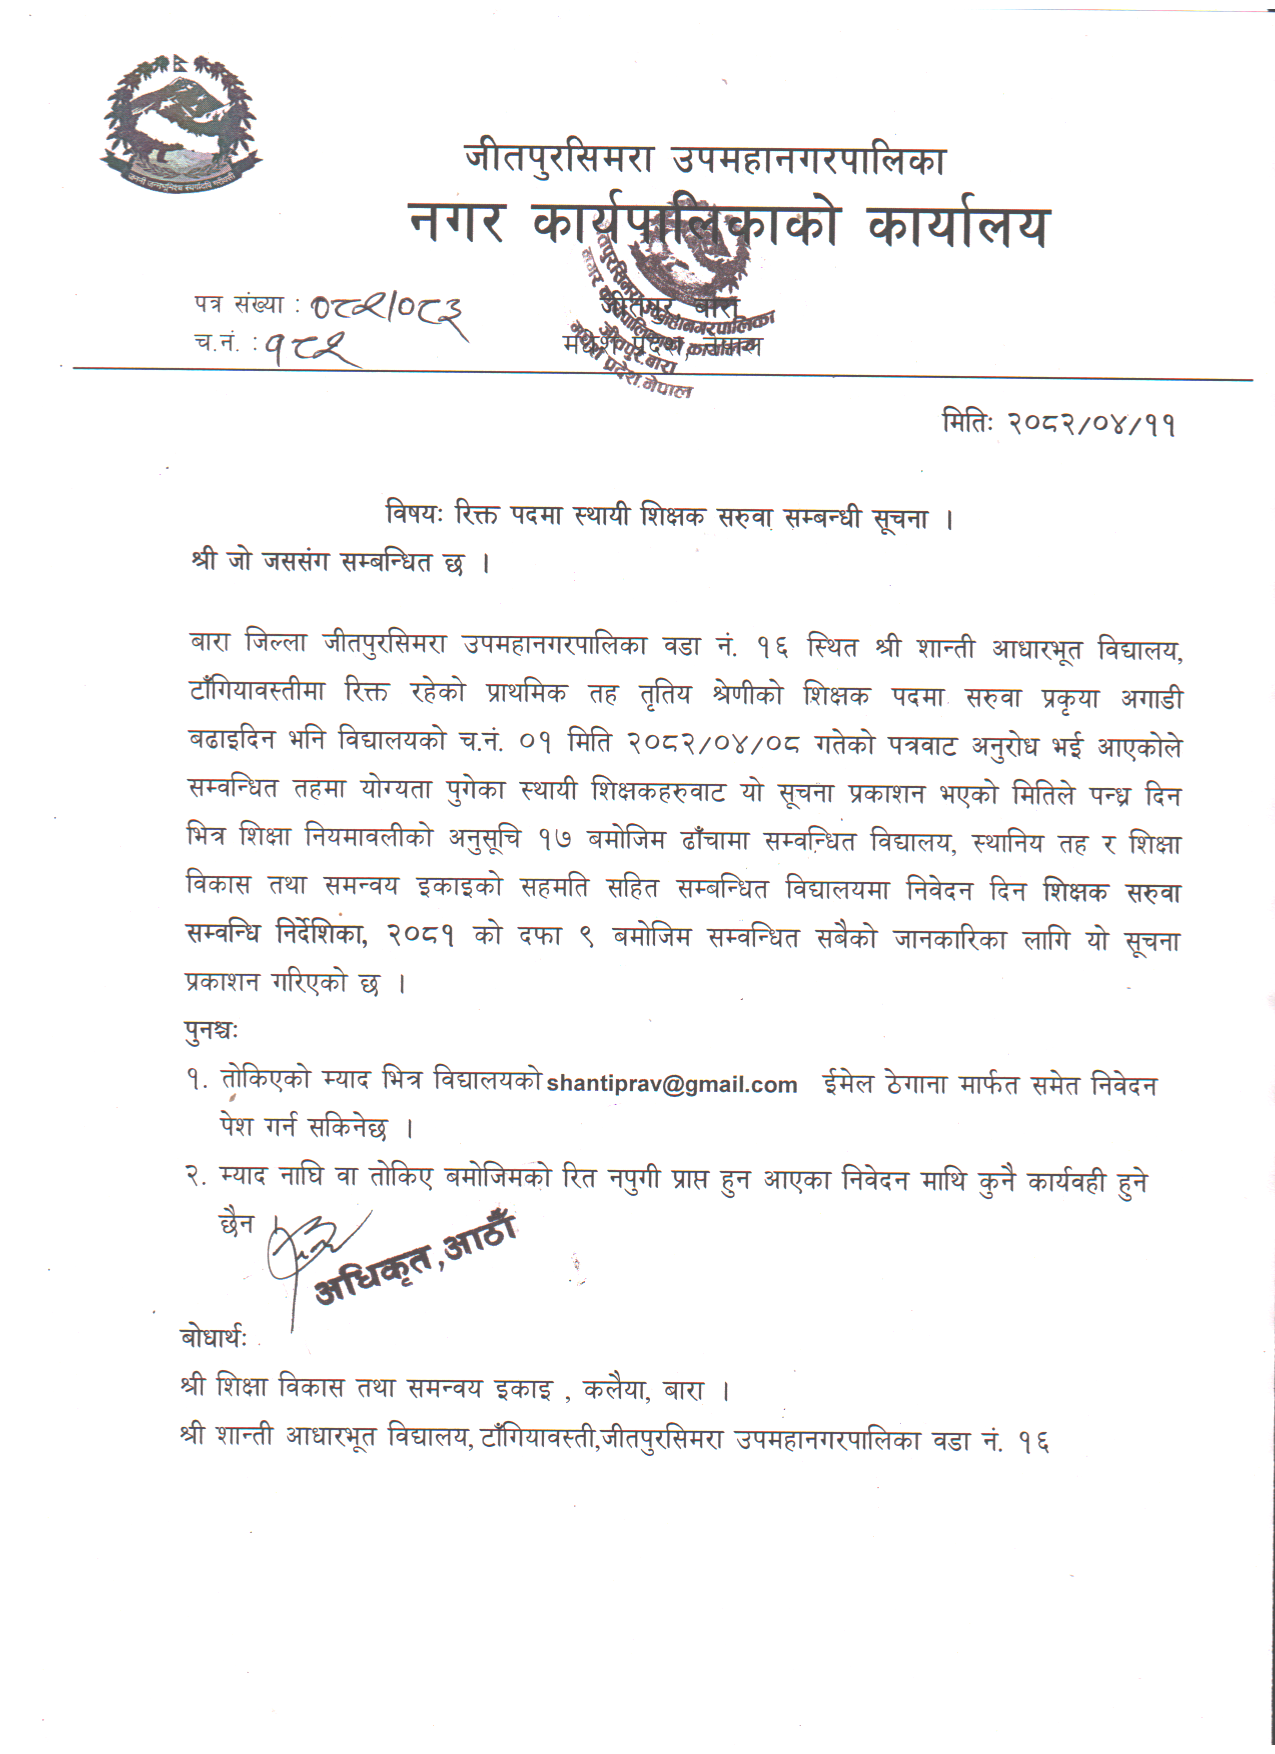 जीतपुरसिमरा उपमहानगरपालिका
नगर कार्यपालिकाको कार्यालय
पत्र संख्या : ०८२/०८३
जीतपुर, बारा
च.नं. : १८२
मधेश प्रदेश, नेपाल
जीतपुरसिमरा उपमहानगरपालिका
नगर कार्यपालिकाको कार्यालय
जीतपुर, बारा
मधेश प्रदेश, नेपाल
मितिः २०८२/०४/११
विषयः रिक्त पदमा स्थायी शिक्षक सरुवा सम्बन्धी सूचना ।
श्री जो जससंग सम्बन्धित छ ।
बारा जिल्ला जीतपुरसिमरा उपमहानगरपालिका वडा नं. १६ स्थित श्री शान्ती आधारभूत विद्यालय,
टाँगियावस्तीमा रिक्त रहेको प्राथमिक तह तृतिय श्रेणीको शिक्षक पदमा सरुवा प्रकृया अगाडी
बढाइदिन भनि विद्यालयको च.नं. ०१ मिति २०८२/०४/०८ गतेको पत्रवाट अनुरोध भई आएकोले
सम्वन्धित तहमा योग्यता पुगेका स्थायी शिक्षकहरुवाट यो सूचना प्रकाशन भएको मितिले पन्ध्र दिन
भित्र शिक्षा नियमावलीको अनुसूचि १७ बमोजिम ढाँचामा सम्वन्धित विद्यालय, स्थानिय तह र शिक्षा
विकास तथा समन्वय इकाइको सहमति सहित सम्बन्धित विद्यालयमा निवेदन दिन शिक्षक सरुवा
सम्वन्धि निर्देशिका, २०८१ को दफा ९ बमोजिम सम्वन्धित सबैको जानकारिका लागि यो सूचना
प्रकाशन गरिएको छ ।
पुनश्चः
१. तोकिएको म्याद भित्र विद्यालयको shantiprav@gmail.com ईमेल ठेगाना मार्फत समेत निवेदन
पेश गर्न सकिनेछ ।
२. म्याद नाघि वा तोकिए बमोजिमको रित नपुगी प्राप्त हुन आएका निवेदन माथि कुनै कार्यवही हुने
छैन ।
अधिकृत, आठौँ
बोधार्थः
श्री शिक्षा विकास तथा समन्वय इकाइ , कलैया, बारा ।
श्री शान्ती आधारभूत विद्यालय, टाँगियावस्ती,जीतपुरसिमरा उपमहानगरपालिका वडा नं. १६